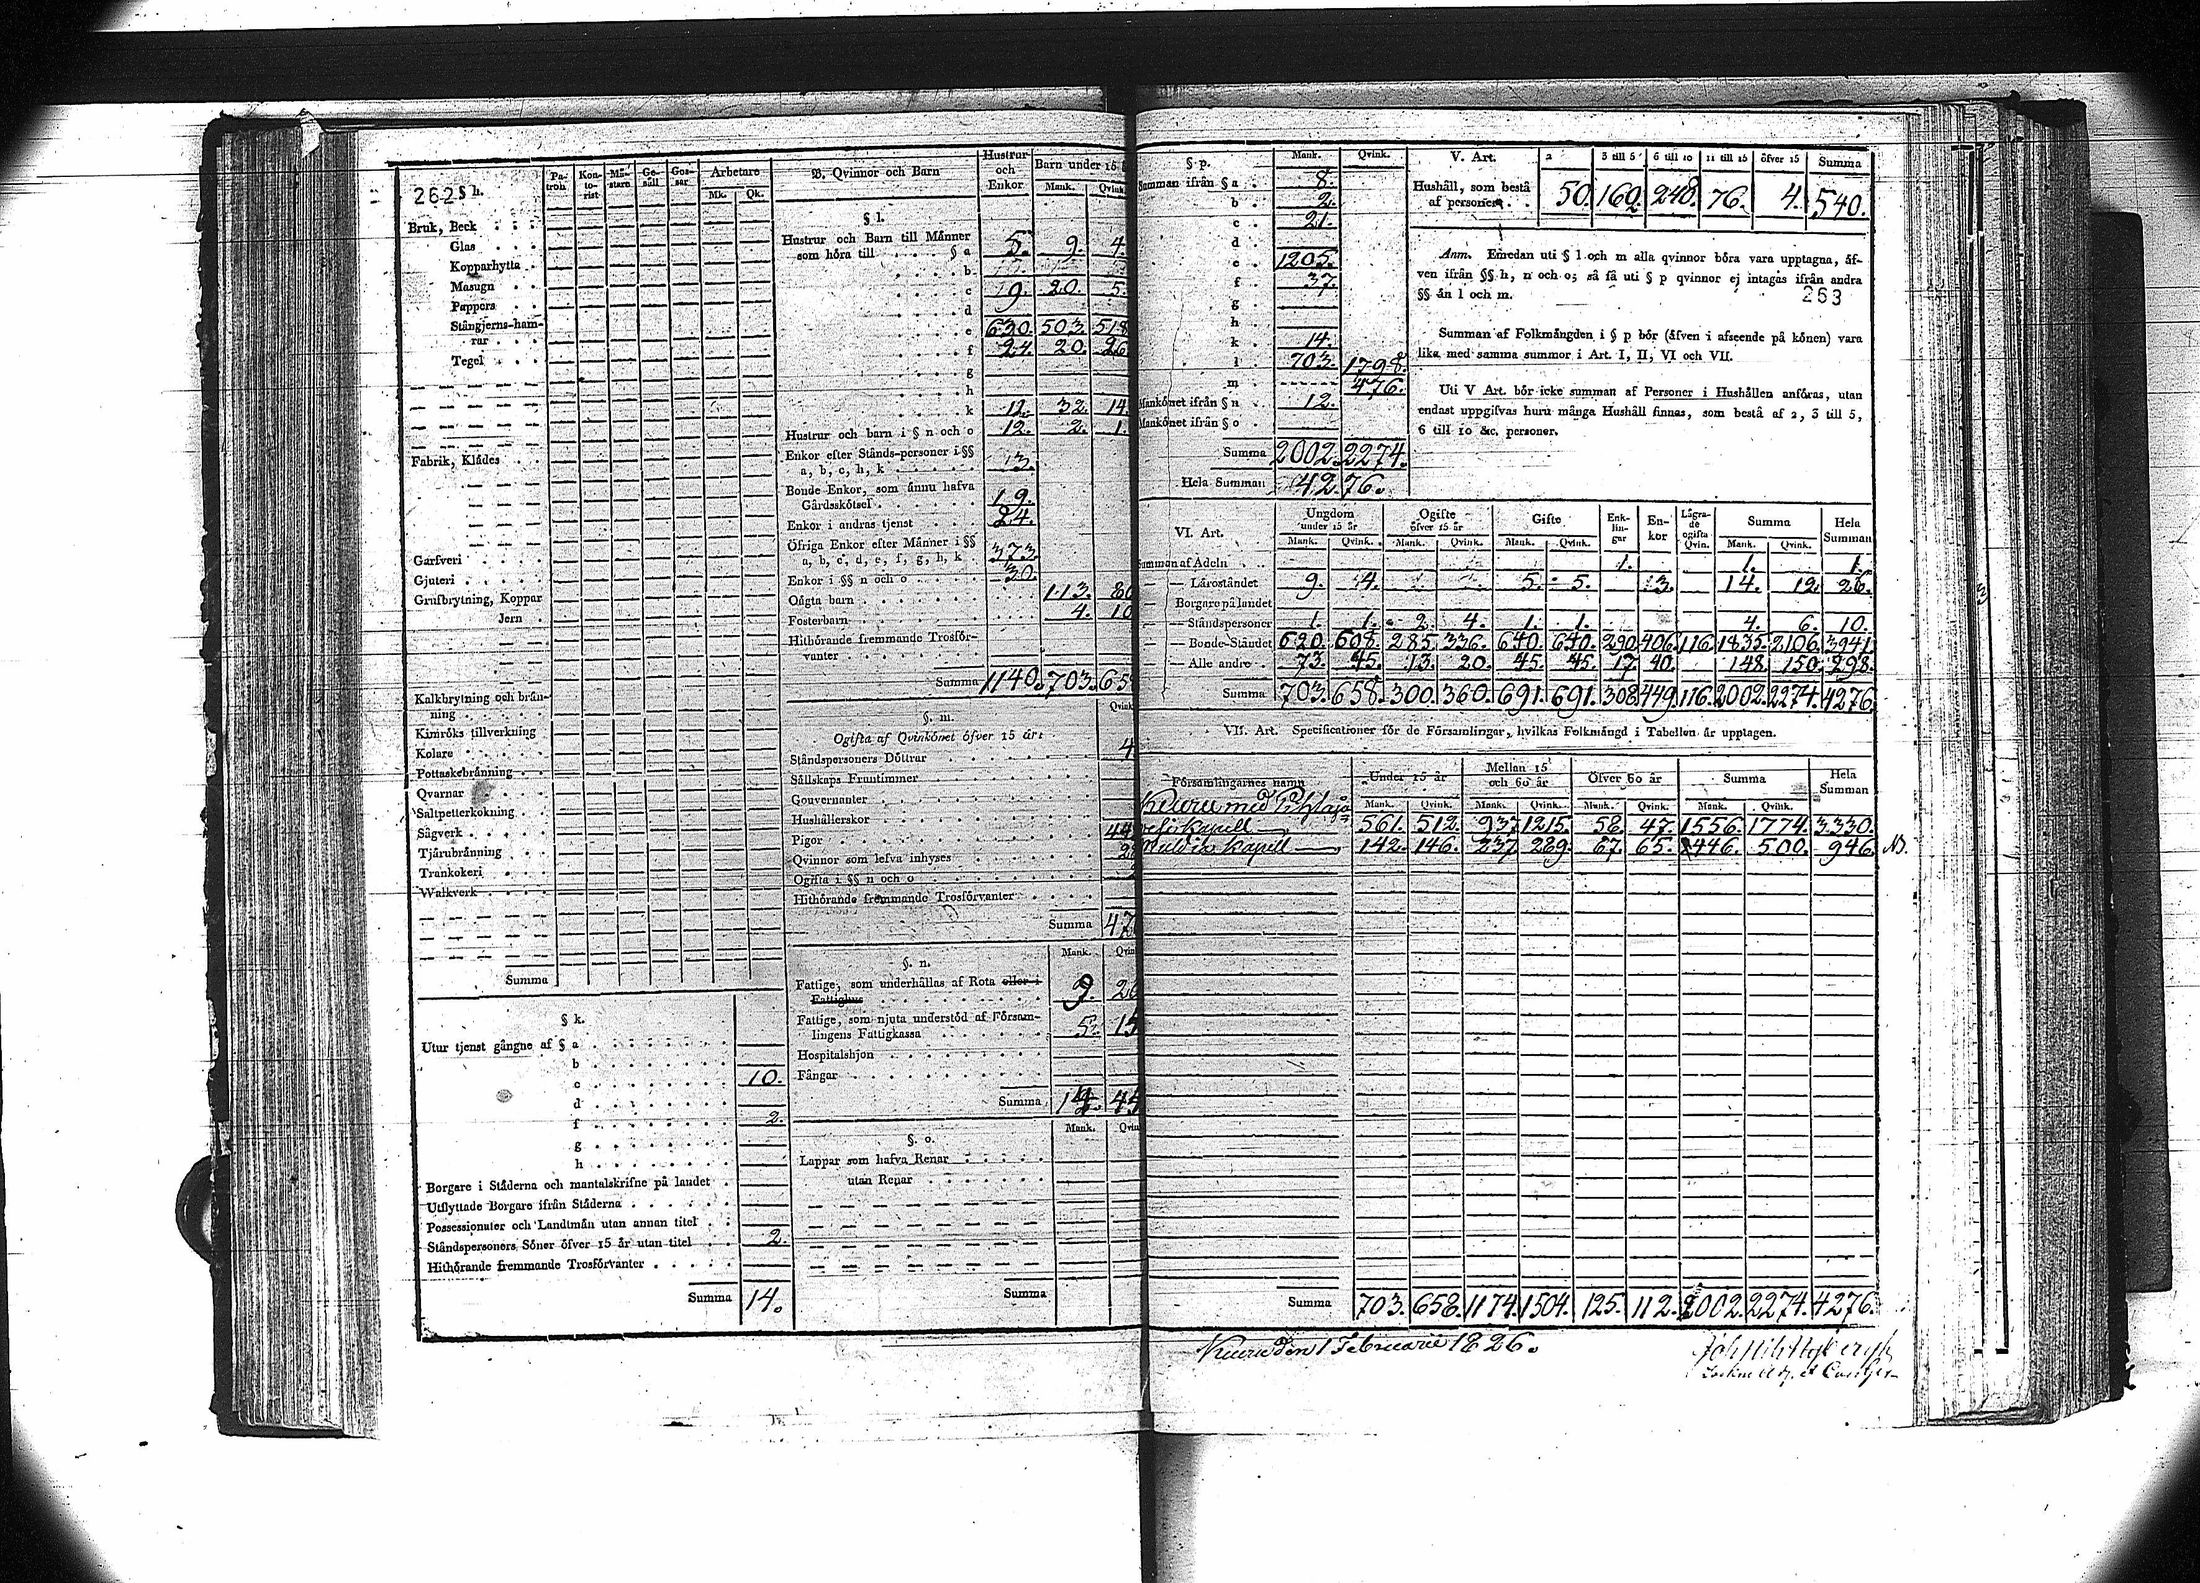 262 § h.
Pa-
tron
Kon-
to-
rist
Mä-
starn
Ge-
säll
Gos-
sar
Arbetare
Mk. Qk.
Bruk, Beck
Glas
Kopparhytta
Masugn
Pappers
Stångjerns-ham-
rar
Tegel
Fabrik, Klädes
Garfveri
Gjuteri
Grufbrytning, Koppar
Jern
Kalkbrytning och brän-
ning
Kimröks tillverkning
Kolare
Pottaskebränning
Qvarnar
Saltpetterkokning
Sågverk
Tjärubränning
Trankokeri
Walkverk
Summa
§ k.
Utur tjenst gångne af § a
b
c 10.
d
f 2.
g
h
Borgare i Städerna och mantalskrifne på landet
Utflyttade Borgare ifrån Städerna
Possessionater och Landtmän utan annan titel
Ståndspersoners Söner öfver 15 år utan titel 2.
Hithörande fremmande Trosförvanter
Summa 14.
B. Qvinnor och Barn
Hustrur
och
Enkor
Barn under 15
Mank. Qvink
§ l.
Hustrur och Barn till Männer
som höra till § a 5. 9. 4.
b
c 9. 20. 5.
d
e 630. 503. 518
f 24. 20. 26
g
h
k 12. 32. 14.
Hustrur och barn i § n och o 12. 2. 1.
Enkor efter Stånds-personer i §§
a, b, c, h, k 3.
Bonde Enkor, som ännu hafva
Gårdsskötsel 19.
Enkor i andras tjenst 24.
Öfriga Enkor efter Männer i §§
a, b, c, d, e, f, g, h, k 373.
Enkor i §§ n och o 30.
Oägta barn 113. 80
Fosterbarn 4. 10
Hithörande fremmande Trosför-
vanter
Summa 1140. 703. 658
§. m.
Qvink
Ogifta af Qvinkönet öfver 15 år:
Ståndspersoners Döttrar 4
Sällskaps Fruntimmer
Gouvernanter
Hushållerskor
Pigor 44
Qvinnor som lefva inhyses 2
Ogifta i §§ n och o
Hithörande fremmande Trosförvanter
Summa 47
§. n.
Mank. Qvin
Fattige, som underhållas af Rota eller i
Fattighus 9. 26
Fattige, som njuta understöd af Försam-
lingens Fattigkassa 5. 15
Hospitalshjon
Fångar
Summa 14. 44
§. o.
Mank. Qvin
Lappar som hafva Renar
utan Renar
Summa
§ p. Mank. Qvink.
Summan ifrån § a 8.
b 2.
c 21.
d
e 1205.
f 37.
g
h
k 14.
l 703. 1798.
m 476.
Mankönet ifrån § n 12.
Mankönet ifrån § o
Summa 2002. 2274.
Hela Summan 4276.
V. Art. 2 3 till 5 6 till 10 11 till 15 öfver 15 Summa
Hushåll, som bestå
af personer 50. 162. 248. 76. 4. 540.
Anm. Emedan uti § l och m alla qvinnor böra vara upptagna, äf-
ven ifrån §§ h, n och o; så få uti § p qvinnor ej intagas ifrån andra
§§ än l och m.
263
Summan af Folkmängden i § p bör (äfven i afseende på könen) vara
lika med samma summor i Art. I, II, VI och VII.
Uti V Art. bör icke summan af Personer i Hushållen anföras, utan
endast uppgifvas huru många Hushåll finnas, som bestå af 2, 3 till 5,
6 till 10 &c. personer.
VI. Art.
Ungdom
under 15 år
Ogifte
öfver 15 år
Gifte
Enk-
lin-
gar
En-
kor
Lägra-
de
ogifta
Qvin.
Summa
Hela
Summan
Mank. Qvink. Mank. Qvink. Mank. Qvink. Mank. Qvink.
Summan af Adeln 1. 1. 1.
— Läroståndet 9. 4. 5. 5. 3. 14. 12. 26.
— Borgare på landet
— Ståndspersoner 1. 1. 2. 4. 1. 1. 4. 6. 10.
— Bonde-Ståndet 620. 608. 285. 336. 640. 640. 290. 406. 116. 1835. 2106. 3941.
— Alle andre 73. 45. 13. 20. 45. 45. 17. 40. 148. 150. 298.
Summa 703. 658. 300. 360. 691. 691. 308. 449. 116. 2002. 2274. 4276.
VII. Art. Specificationer för de Församlingar, hvilkas Folkmängd i Tabellen är upptagen.
Församlingarnes namn
Under 15 år
Mellan 15
och 60 år
Öfver 60 år
Summa
Hela
Summan
Mank. Qvink. Mank. Qvink. Mank. Qvink. Mank. Qvink.
Keuru med Pihlaja-
vesi Kapell 561. 512. 937. 1215. 58. 47. 1556. 1774. 3330.
Multia Kapell 142. 146. 237. 289. 67. 65. 446. 500. 946. NB.
Summa 703. 658. 1174. 1504. 125. 112. 2002. 2274. 4276.
Keuru den 1 Februarii 1826.